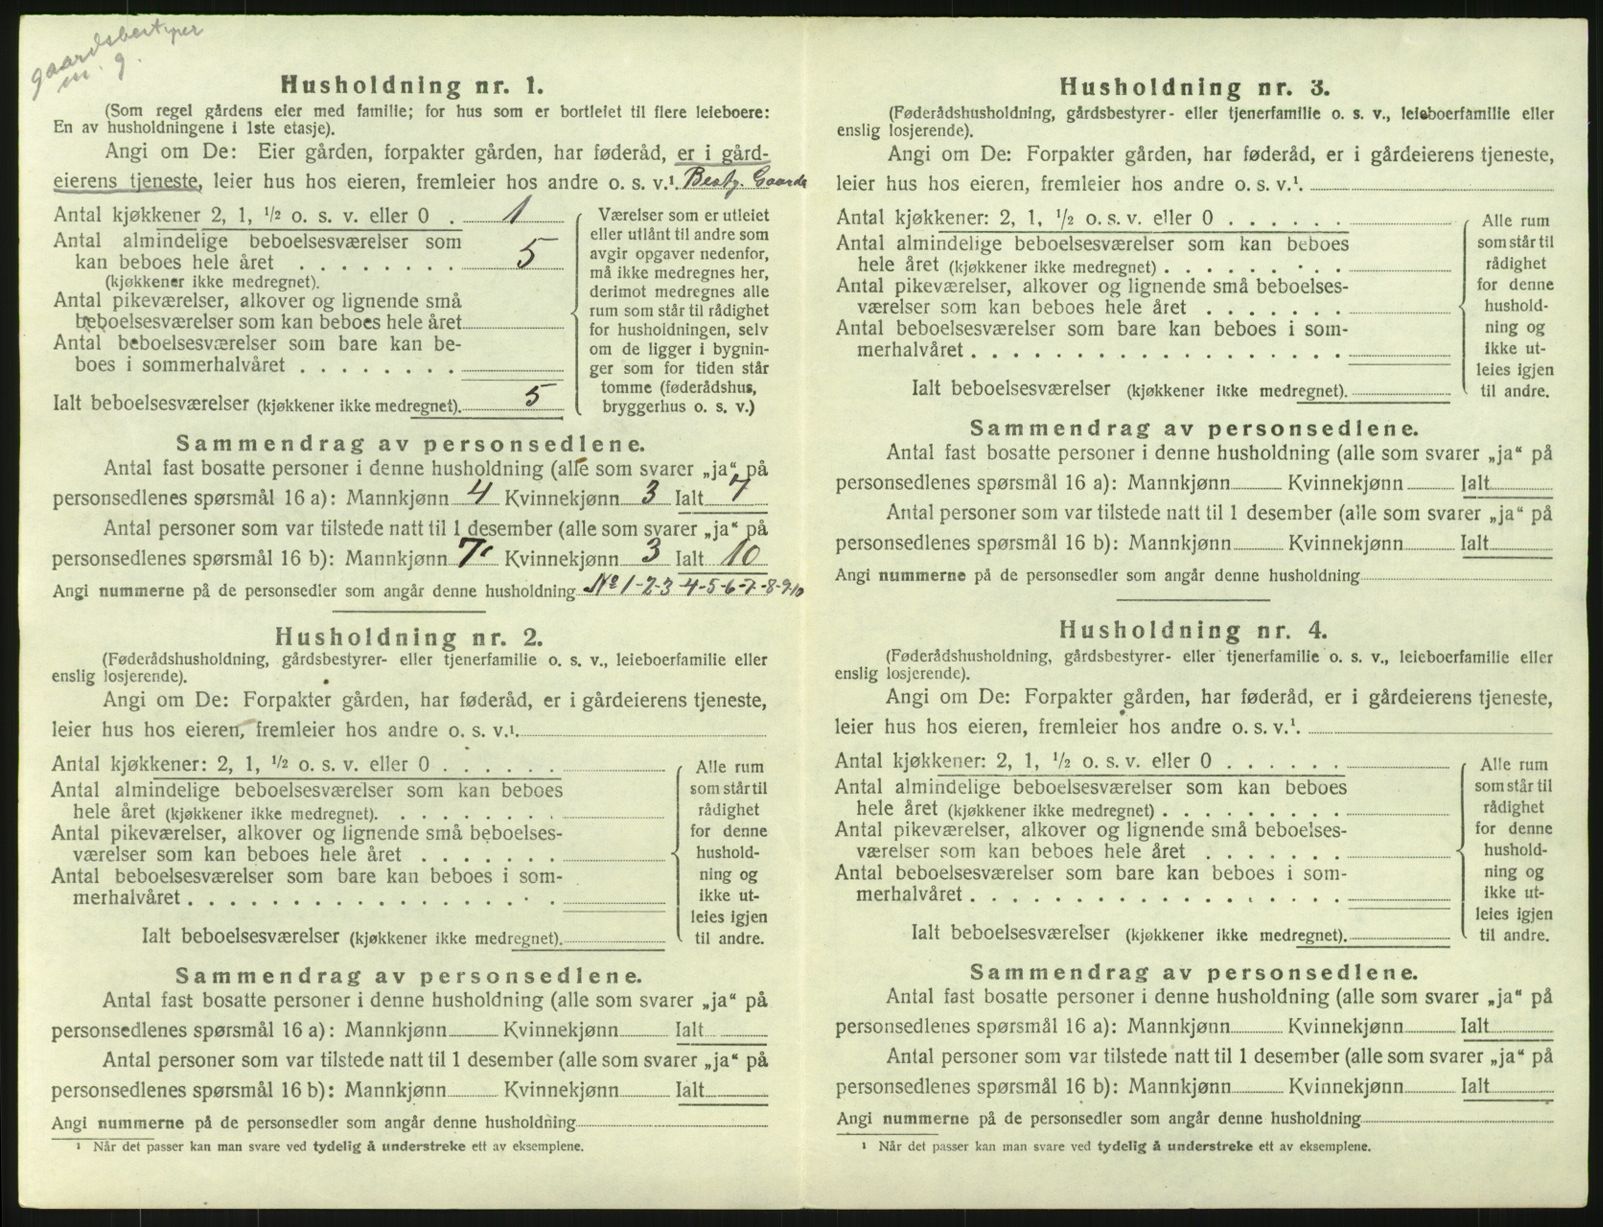 gaardsbestyrer
m. g.
Husholdning nr. 1.
(Som regel gårdens eier med familie; for hus som er bortleiet til flere leieboere:
En av husholdningene i 1ste etasje).
Angi om De: Eier gården, forpakter gården, har føderåd, er i gård-
eierens tjeneste, leier hus hos eieren, fremleier hos andre o. s. v.¹. Besty. Gaarde
Antal kjøkkener 2, 1, ½ o. s. v. eller 0 . 1
Antal almindelige beboelsesværelser som
kan beboes hele året . . . . . . . . 5
(kjøkkener ikke medregnet).
Antal pikeværelser, alkover og lignende små
beboelsesværelser som kan beboes hele året
Antal beboelsesværelser som bare kan be-
boes i sommerhalvåret . . . . . . . .
Ialt beboelsesværelser (kjøkkener ikke medregnet). 5
Værelser som er utleiet
eller utlånt til andre som
avgir opgaver nedenfor,
må ikke medregnes her,
derimot medregnes alle
rum som står til rådighet
for husholdningen, selv
om de ligger i bygnin-
ger som for tiden står
tomme (føderådshus,
bryggerhus o. s. v.)
Sammendrag av personsedlene.
Antal fast bosatte personer i denne husholdning (alle som svarer „ja“ på
personsedlenes spørsmål 16 a): Mannkjønn 4 Kvinnekjønn 3 Ialt 7
Antal personer som var tilstede natt til 1 desember (alle som svarer „ja“ på
personsedlenes spørsmål 16 b): Mannkjønn 7 Kvinnekjønn 3 Ialt 10
Angi nummerne på de personsedler som angår denne husholdning No 1-2-3-4-5-6-7-8-9-10
Husholdning nr. 2.
(Føderådshusholdning, gårdsbestyrer- eller tjenerfamilie o. s. v., leieboerfamilie eller
enslig losjerende).
Angi om De: Forpakter gården, har føderåd, er i gårdeierens tjeneste,
leier hus hos eieren, fremleier hos andre o. s. v.¹.
Antal kjøkkener: 2, 1, ½ o. s. v. eller 0 . . . . . .
Antal almindelige beboelsesværelser som kan beboes
hele året (kjøkkener ikke medregnet). . . . . . . . .
Antal pikeværelser, alkover og lignende små beboelses-
værelser som kan beboes hele året . . . . . . .
Antal beboelsesværelser som bare kan beboes i som-
merhalvåret . . . . . . . . . . . . . . . . . .
Ialt beboelsesværelser (kjøkkener ikke medregnet).
Alle rum
som står til
rådighet
for denne
hushold-
ning og
ikke ut-
leies igjen
til andre.
Sammendrag av personsedlene.
Antal fast bosatte personer i denne husholdning (alle som svarer „ja“ på
personsedlenes spørsmål 16 a): Mannkjønn Kvinnekjønn Ialt
Antal personer som var tilstede natt til 1 desember (alle som svarer „ja“ på
personsedlenes spørsmål 16 b): Mannkjønn Kvinnekjønn Ialt
Angi nummerne på de personsedler som angår denne husholdning
¹ Når det passer kan man svare ved tydelig å understreke ett av eksemplene.
Husholdning nr. 3.
(Føderådshusholdning, gårdsbestyrer- eller tjenerfamilie o. s. v., leieboerfamilie eller
enslig losjerende).
Angi om De: Forpakter gården, har føderåd, er i gårdeierens tjeneste,
leier hus hos eieren, fremleier hos andre o. s. v.¹.
Antal kjøkkener: 2, 1, ½ o. s. v. eller 0 . . . . . .
Antal almindelige beboelsesværelser som kan beboes
hele året (kjøkkener ikke medregnet) . . . . . . . . .
Antal pikeværelser, alkover og lignende små beboelses-
værelser som kan beboes hele året . . . . . . .
Antal beboelsesværelser som bare kan beboes i som-
merhalvåret . . . . . . . . . . . . . . . . . .
Ialt beboelsesværelser (kjøkkener ikke medregnet).
Alle rum
som står til
rådighet
for denne
hushold-
ning og
ikke ut-
leies igjen
til andre.
Sammendrag av personsedlene.
Antal fast bosatte personer i denne husholdning (alle som svarer „ja“ på
personsedlenes spørsmål 16 a): Mannkjønn Kvinnekjønn Ialt
Antal personer som var tilstede natt til 1 desember (alle som svarer „ja“ på
personsedlenes spørsmål 16 b): Mannkjønn Kvinnekjønn Ialt
Angi nummerne på de personsedler som angår denne husholdning
Husholdning nr. 4.
(Føderådshusholdning, gårdsbestyrer- eller tjenerfamilie o. s. v., leieboerfamilie eller
enslig losjerende).
Angi om De: Forpakter gården, har føderåd, er i gårdeierens tjeneste,
leier hus hos eieren, fremleier hos andre o. s. v.¹.
Antal kjøkkener: 2, 1, ½ o. s. v. eller 0 . . . . . .
Antal almindelige beboelsesværelser som kan beboes
hele året (kjøkkener ikke medregnet) . . . . . . . . .
Antal pikeværelser, alkover og lignende små beboelses-
værelser som kan beboes hele året . . . . . . .
Antal beboelsesværelser som bare kan beboes i som-
merhalvåret . . . . . . . . . . . . . . . . . .
Ialt beboelsesværelser (kjøkkener ikke medregnet).
Alle rum
som står til
rådighet
for denne
hushold-
ning og
ikke ut-
leies igjen
til andre.
Sammendrag av personsedlene.
Antal fast bosatte personer i denne husholdning (alle som svarer „ja“ på
personsedlenes spørsmål 16 a): Mannkjønn Kvinnekjønn Ialt
Antal personer som var tilstede natt til 1 desember (alle som svarer „ja“ på
personsedlenes spørsmål 16 b): Mannkjønn Kvinnekjønn Ialt
Angi nummerne på de personsedler som angår denne husholdning
¹ Når det passer kan man svare ved tydelig å understreke ett av eksemplene.